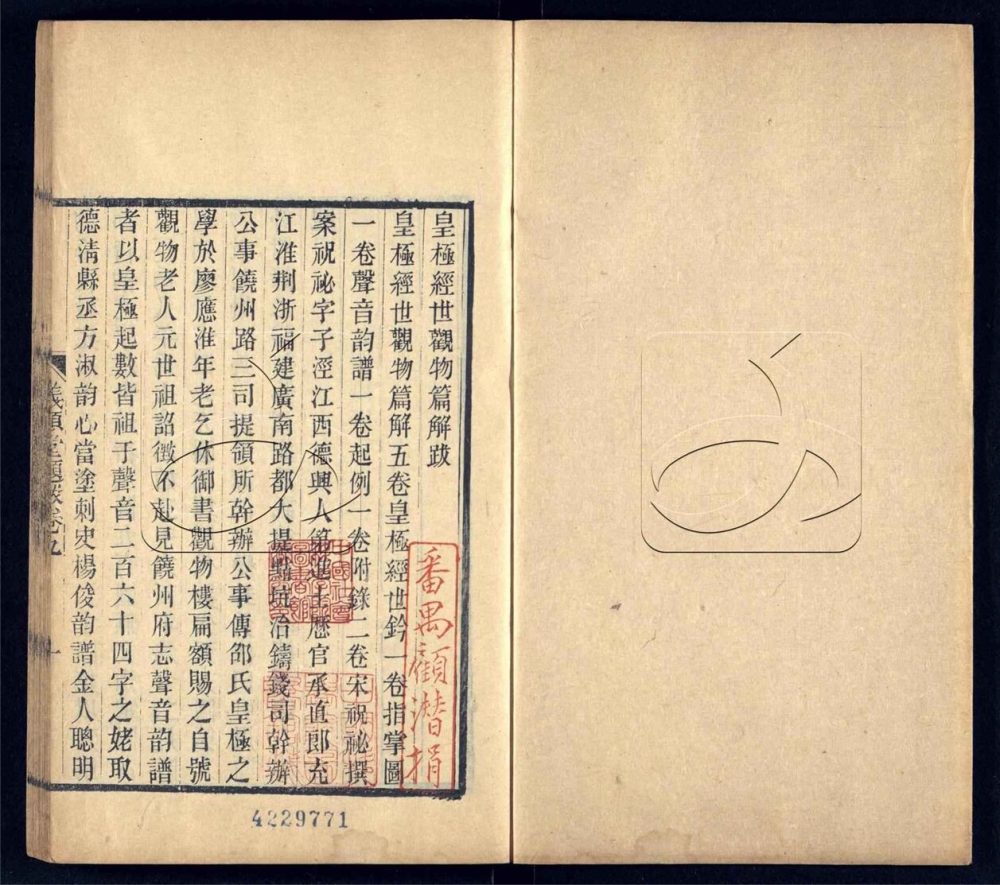 皇極經世觀物篇解跋
皇極經世觀物篇解五卷皇極經世鈐一卷指掌圖
一卷聲音韵譜一卷起例一卷附錄二卷宋祝祕撰
案祝祕字子涇江西德興人第進士歷官承直郎充
江淮荆浙福建廣南路都大提㸃坑冶鑄錢司幹辦
公事饒州路三司提領所幹辦公事傳邵氏皇極之
學於廖應淮年老乞休御書觀物樓扁額賜之自號
觀物老人元世祖詔徵不赴見饒州府志聲音韵譜
者以皇極起數皆祖于聲音二百六十四字之姥取
德清縣丞方淑韵心當塗刺史楊俊韵譜金人聰明
儀顧堂題跋卷九
一
番禺顧潜捐
4229771